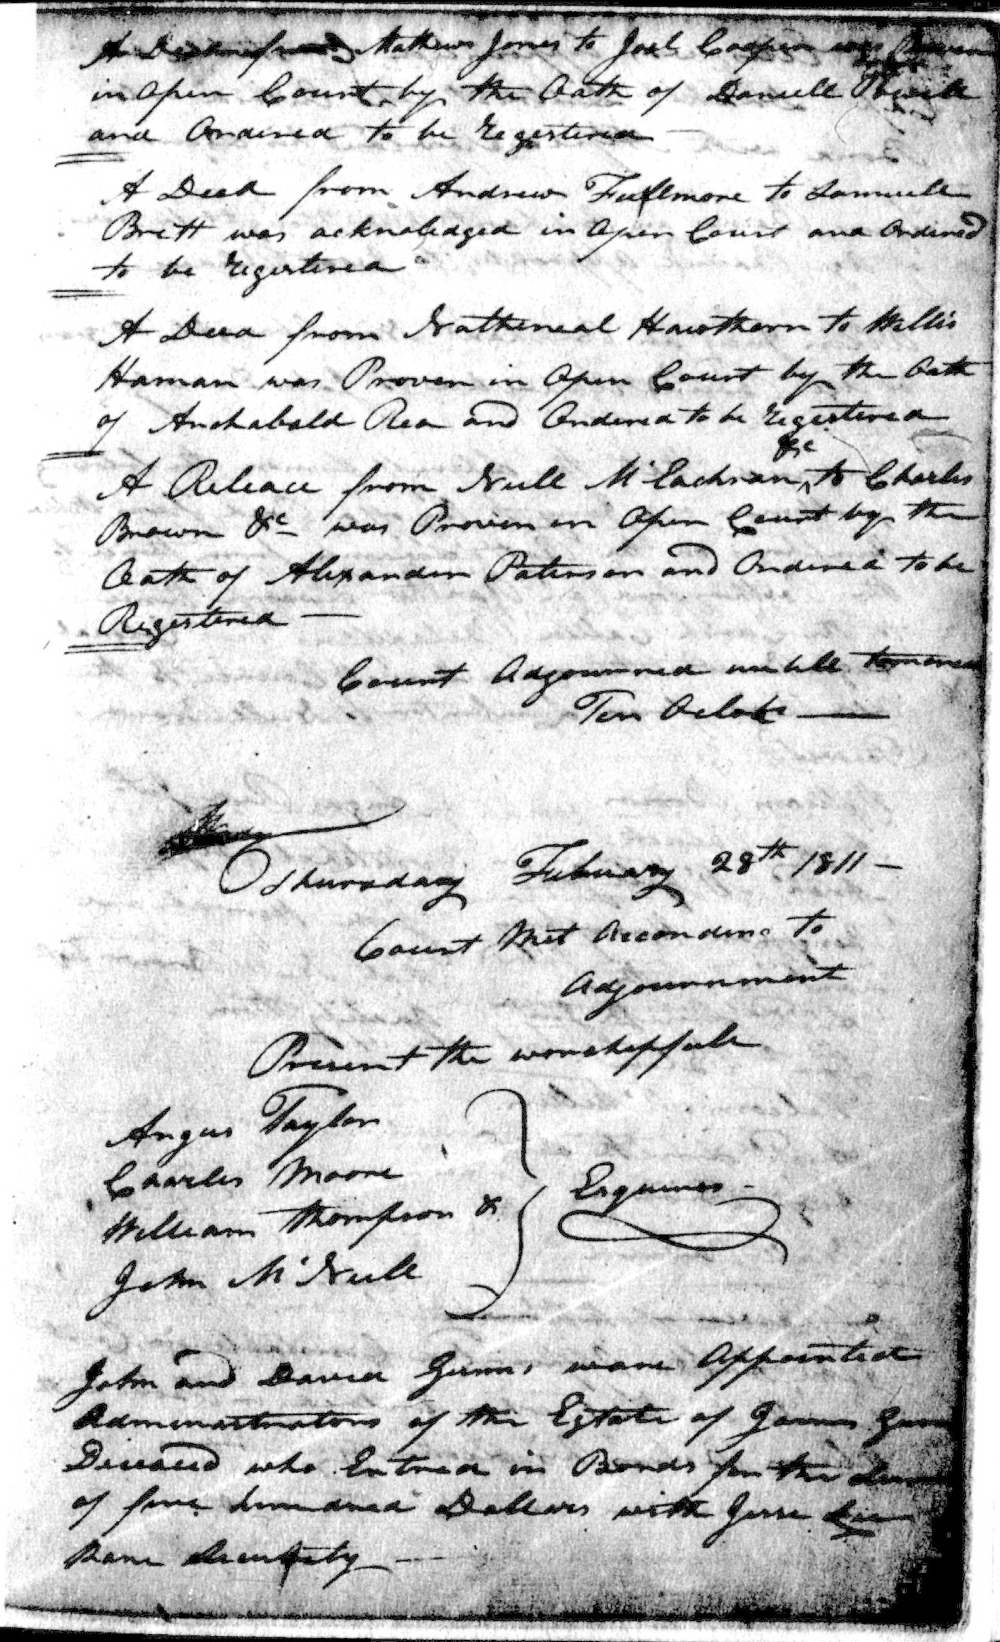 A Deed from Mathew Jones to Joel Cooper was Proven
in Open Court by the Oath of Daniell Powell
and Ordered to be Registered —
A Deed from Andrew Fullmore to Samuell
Britt was acknoledged in Open Court and Ordered
to be Registered
A Deed from Nathineal Hawthorn to Willis
Haman was Proven in Open Court by the Oath
of Archabald Rea and Ordered to be Registered
&c
A Releace from Neill McEachran to Charles
Brown &c was Proven in Open Court by the
Oath of Alexander Paterson and Ordered to be
Registered —
Court Adjourned untill tomorrow
Ten Oclok —
Thursday Febuary 28th 1811 —
Court Met According to
Adjournment
Present the worshipfull
Angus Taylor
Charles Moore
William Thompson &
John McNeill
Esquires -
John and David Gunns ware Appointed
Administrators of the Estate of James
Deceased who Entred in Bonds for the Sum
of five hundred Dollars with Jesse Lee
Bane Security —